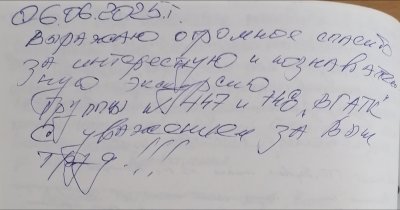 06.06.2025г.
Выражаю огромное спасибо
за интересную и познаватель
ную экскурсию
Группы № 747 и 748 „ВГАПК"
С уважением за Ваш
труд!!!